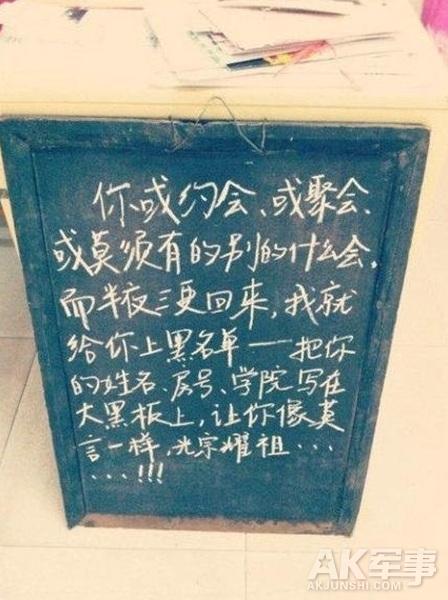 你或约会、或聚会、
或莫须有的别的什么会,
而半夜三更回来,我就
给你上黑名单——把你
的姓名、房号、学院写在
大黑板上,让你像莫
言一样,光宗耀祖...
...!!!
AK军事
AKJUNSHI.COM